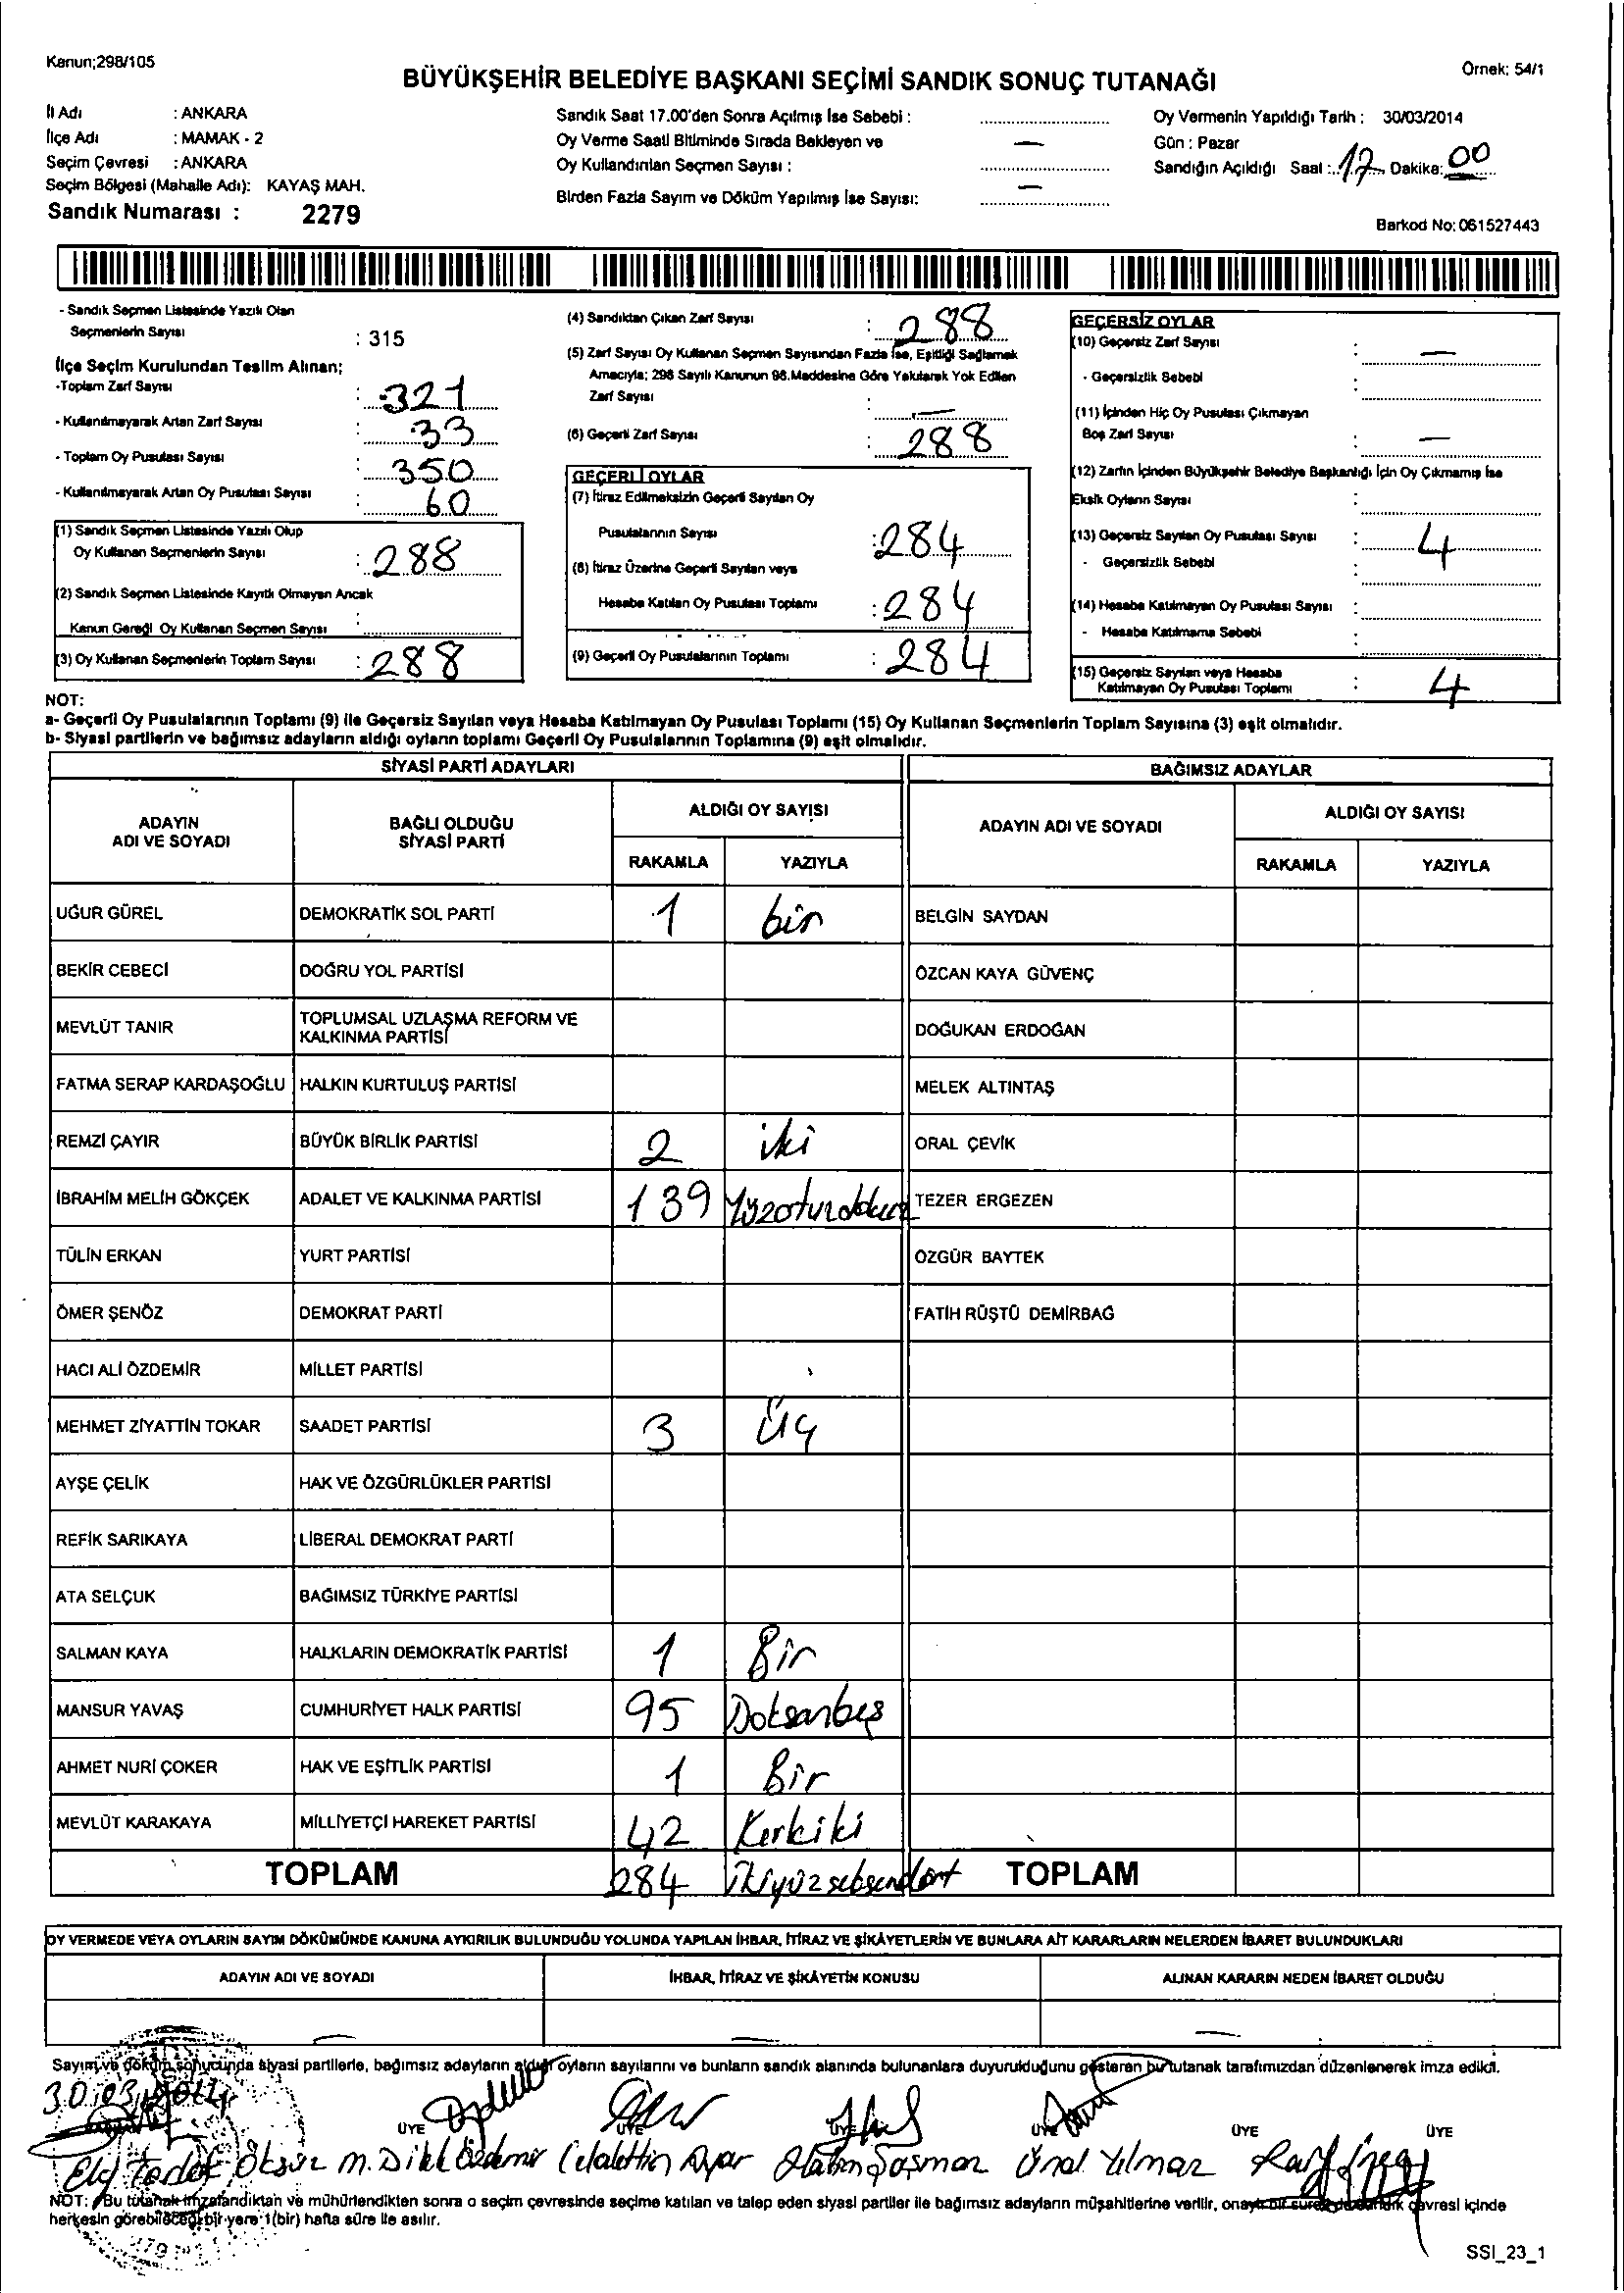 Kanun;298/105
Örnek: 54/1
BÜYÜKŞEHİR BELEDİYE BAŞKANI SEÇİMİ SANDIK SONUÇ TUTANAĞI
İl Adı : ANKARA
İlçe Adı : MAMAK - 2
Seçim Çevresi : ANKARA
Seçim Bölgesi (Mahalle Adı): KAYAŞ MAH.
Sandık Numarası : 2279
Sandık Saat 17.00'den Sonra Açılmış İse Sebebi :
Oy Verme Saati Bitiminde Sırada Bekleyen ve —
Oy Kullandırılan Seçmen Sayısı :
Birden Fazla Sayım ve Döküm Yapılmış İse Sayısı: —
Oy Vermenin Yapıldığı Tarih : 30/03/2014
Gün : Pazar
Sandığın Açıldığı Saat : 17 Dakika: 00
Barkod No: 061527443
- Sandık Seçmen Listesinde Yazılı Olan
Seçmenlerin Sayısı : 315
İlçe Seçim Kurulundan Teslim Alınan;
-Toplam Zarf Sayısı : 321
- Kullanılmayarak Artan Zarf Sayısı : 33
- Toplam Oy Pusulası Sayısı : 350
- Kullanılmayarak Artan Oy Pusulası Sayısı : 60
(1) Sandık Seçmen Listesinde Yazılı Olup
Oy Kullanan Seçmenlerin Sayısı : 288
(2) Sandık Seçmen Listesinde Kayıtlı Olmayan Ancak
Kanun Gereği Oy Kullanan Seçmen Sayısı :
(3) Oy Kullanan Seçmenlerin Toplam Sayısı : 288
(4) Sandıktan Çıkan Zarf Sayısı : 288
(5) Zarf Sayısı Oy Kullanan Seçmen Sayısından Fazla İse, Eşitliği Sağlamak
Amacıyla; 298 Sayılı Kanunun 98.Maddesine Göre Yakılarak Yok Edilen
Zarf Sayısı : —
(6) Geçerli Zarf Sayısı : 288
GEÇERLİ OYLAR
(7) İtiraz Edilmeksizin Geçerli Sayılan Oy
Pusulalarının Sayısı : 284
(8) İtiraz Üzerine Geçerli Sayılan veya
Hesaba Katılan Oy Pusulası Toplamı : 284
(9) Geçerli Oy Pusulalarının Toplamı : 284
GEÇERSİZ OYLAR
(10) Geçersiz Zarf Sayısı : —
- Geçersizlik Sebebi :
(11) İçinden Hiç Oy Pusulası Çıkmayan
Boş Zarf Sayısı : —
(12) Zarfın İçinden Büyükşehir Belediye Başkanlığı İçin Oy Çıkmamış İse
Eksik Oyların Sayısı :
(13) Geçersiz Sayılan Oy Pusulası Sayısı : 4
- Geçersizlik Sebebi :
(14) Hesaba Katılmayan Oy Pusulası Sayısı :
- Hesaba Katılmama Sebebi :
(15) Geçersiz Sayılan veya Hesaba
Katılmayan Oy Pusulası Toplamı : 4
NOT:
a- Geçerli Oy Pusulalarının Toplamı (9) ile Geçersiz Sayılan veya Hesaba Katılmayan Oy Pusulası Toplamı (15) Oy Kullanan Seçmenlerin Toplam Sayısına (3) eşit olmalıdır.
b- Siyasi partilerin ve bağımsız adayların aldığı oyların toplamı Geçerli Oy Pusulalarının Toplamına (9) eşit olmalıdır.
SİYASİ PARTİ ADAYLARI BAĞIMSIZ ADAYLAR
ADAYIN ADI VE SOYADI BAĞLI OLDUĞU SİYASİ PARTİ ALDIĞI OY SAYISI ADAYIN ADI VE SOYADI ALDIĞI OY SAYISI
RAKAMLA YAZIYLA RAKAMLA YAZIYLA
UĞUR GÜREL DEMOKRATİK SOL PARTİ 1 bir BELGİN SAYDAN
BEKİR CEBECİ DOĞRU YOL PARTİSİ ÖZCAN KAYA GÜVENÇ
MEVLÜT TANIR TOPLUMSAL UZLAŞMA REFORM VE KALKINMA PARTİSİ DOĞUKAN ERDOĞAN
FATMA SERAP KARDAŞOĞLU HALKIN KURTULUŞ PARTİSİ MELEK ALTINTAŞ
REMZİ ÇAYIR BÜYÜK BİRLİK PARTİSİ 2 iki ORAL ÇEVİK
İBRAHİM MELİH GÖKÇEK ADALET VE KALKINMA PARTİSİ 139 TEZER ERGEZEN
TÜLİN ERKAN YURT PARTİSİ ÖZGÜR BAYTEK
ÖMER ŞENÖZ DEMOKRAT PARTİ FATİH RÜŞTÜ DEMİRBAĞ
HACI ALİ ÖZDEMİR MİLLET PARTİSİ
MEHMET ZİYATTİN TOKAR SAADET PARTİSİ 3 Üç
AYŞE ÇELİK HAK VE ÖZGÜRLÜKLER PARTİSİ
REFİK SARIKAYA LİBERAL DEMOKRAT PARTİ
ATA SELÇUK BAĞIMSIZ TÜRKİYE PARTİSİ
SALMAN KAYA HALKLARIN DEMOKRATİK PARTİSİ 1 Bir
MANSUR YAVAŞ CUMHURİYET HALK PARTİSİ 95 Doksanbeş
AHMET NURİ ÇOKER HAK VE EŞİTLİK PARTİSİ 1 Bir
MEVLÜT KARAKAYA MİLLİYETÇİ HAREKET PARTİSİ 42 Kırkiki
TOPLAM 284 ikiyüzseksendört TOPLAM
OY VERMEDE VEYA OYLARIN SAYIM DÖKÜMÜNDE KANUNA AYKIRILIK BULUNDUĞU YOLUNDA YAPILAN İHBAR, İTİRAZ VE ŞİKÂYETLERİN VE BUNLARA AİT KARARLARIN NELERDEN İBARET BULUNDUKLARI
ADAYIN ADI VE SOYADI İHBAR, İTİRAZ VE ŞİKÂYETİN KONUSU ALINAN KARARIN NEDEN İBARET OLDUĞU
— — —
Sayım ve döküm sonucunda siyasi partilerle, bağımsız adayların aldığı oyların sayılarını ve bunların sandık alanında bulunanlara duyurulduğunu gösteren bu tutanak tarafımızdan düzenlenerek imza edildi.
30.03.2014
ÜYE ÜYE ÜYE ÜYE ÜYE ÜYE
Öksüz M. Dilek Özdemir Celalettin Ayar Hatun Şaşmaz Ünal Yılmaz
NOT: Bu tutanak imzalandıktan ve mühürlendikten sonra o seçim çevresinde seçime katılan ve talep eden siyasi partiler ile bağımsız adayların müşahitlerine verilir, çevresi içinde
herkesin görebileceği bir yere 1(bir) hafta süre ile asılır.
SSI_23_1